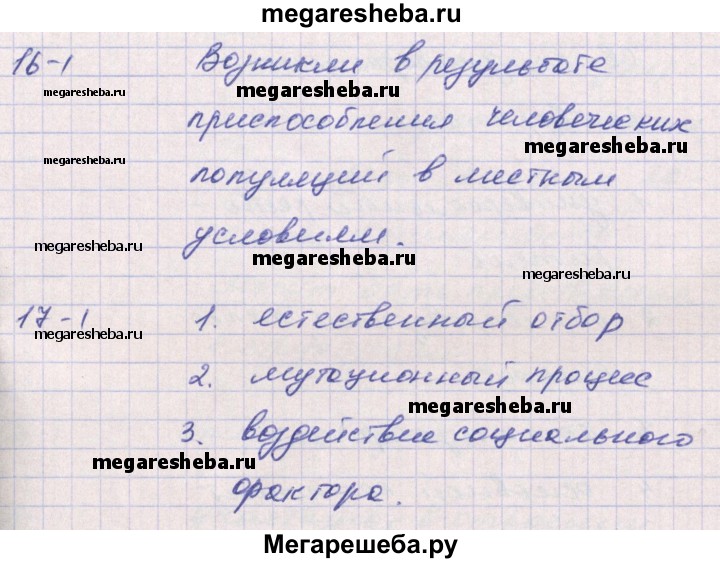 megaresheba.ru
16-1 Возникли в результате
megaresheba.ru megaresheba.ru
приспособления человеческих
megaresheba.ru megaresheba.ru
популяций в местным
условиям.
megaresheba.ru megaresheba.ru megaresheba.ru
17-1 1. естественный отбор
megaresheba.ru
2. мутационный процесс
megaresheba.ru
3. воздействие социального
megaresheba.ru
фактора.
Мегарешеба.ру